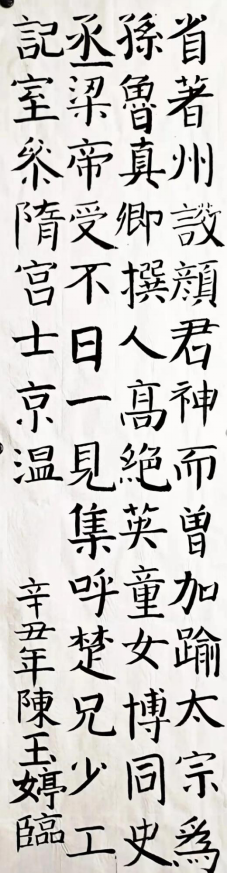 省著州顏君神而曾加踰太宗為
孫魯真卿撰人高絕英童女博同史
丞梁帝受不日一見集呼楚兄少工
記室參隋宮士京溫
辛丑年陳玉婷臨